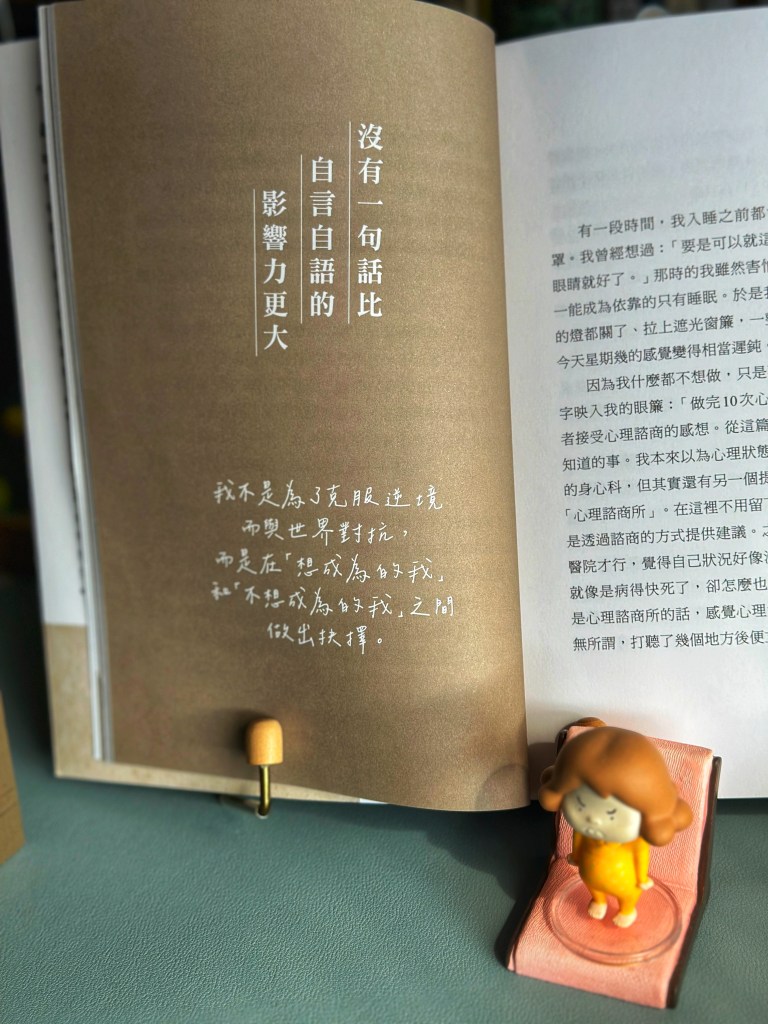 沒有一句話比
自言自語的
影響力更大
我不是為了克服逆境
而與世界對抗，
而是在「想成為的我」
和「不想成為的我」之間
做出抉擇。
有一段時間，我入睡之前都
罩。我曾經想過：「要是可以就這
眼睛就好了。」那時的我雖然害怕
一能成為依靠的只有睡眠。於是我
的燈都關了、拉上遮光窗簾，一
今天星期幾的感覺變得相當遲鈍，
因為我什麼都不想做，只是
字映入我的眼簾：「做完10次心
者接受心理諮商的感想。從這篇
知道的事。我本來以為心理狀態
的身心科，但其實還有另一個提
「心理諮商所」。在這裡不用留下
是透過諮商的方式提供建議。
醫院才行，覺得自己狀況好像
就像是病得快死了，卻怎麼也
是心理諮商所的話，感覺心理
無所謂，打聽了幾個地方後便